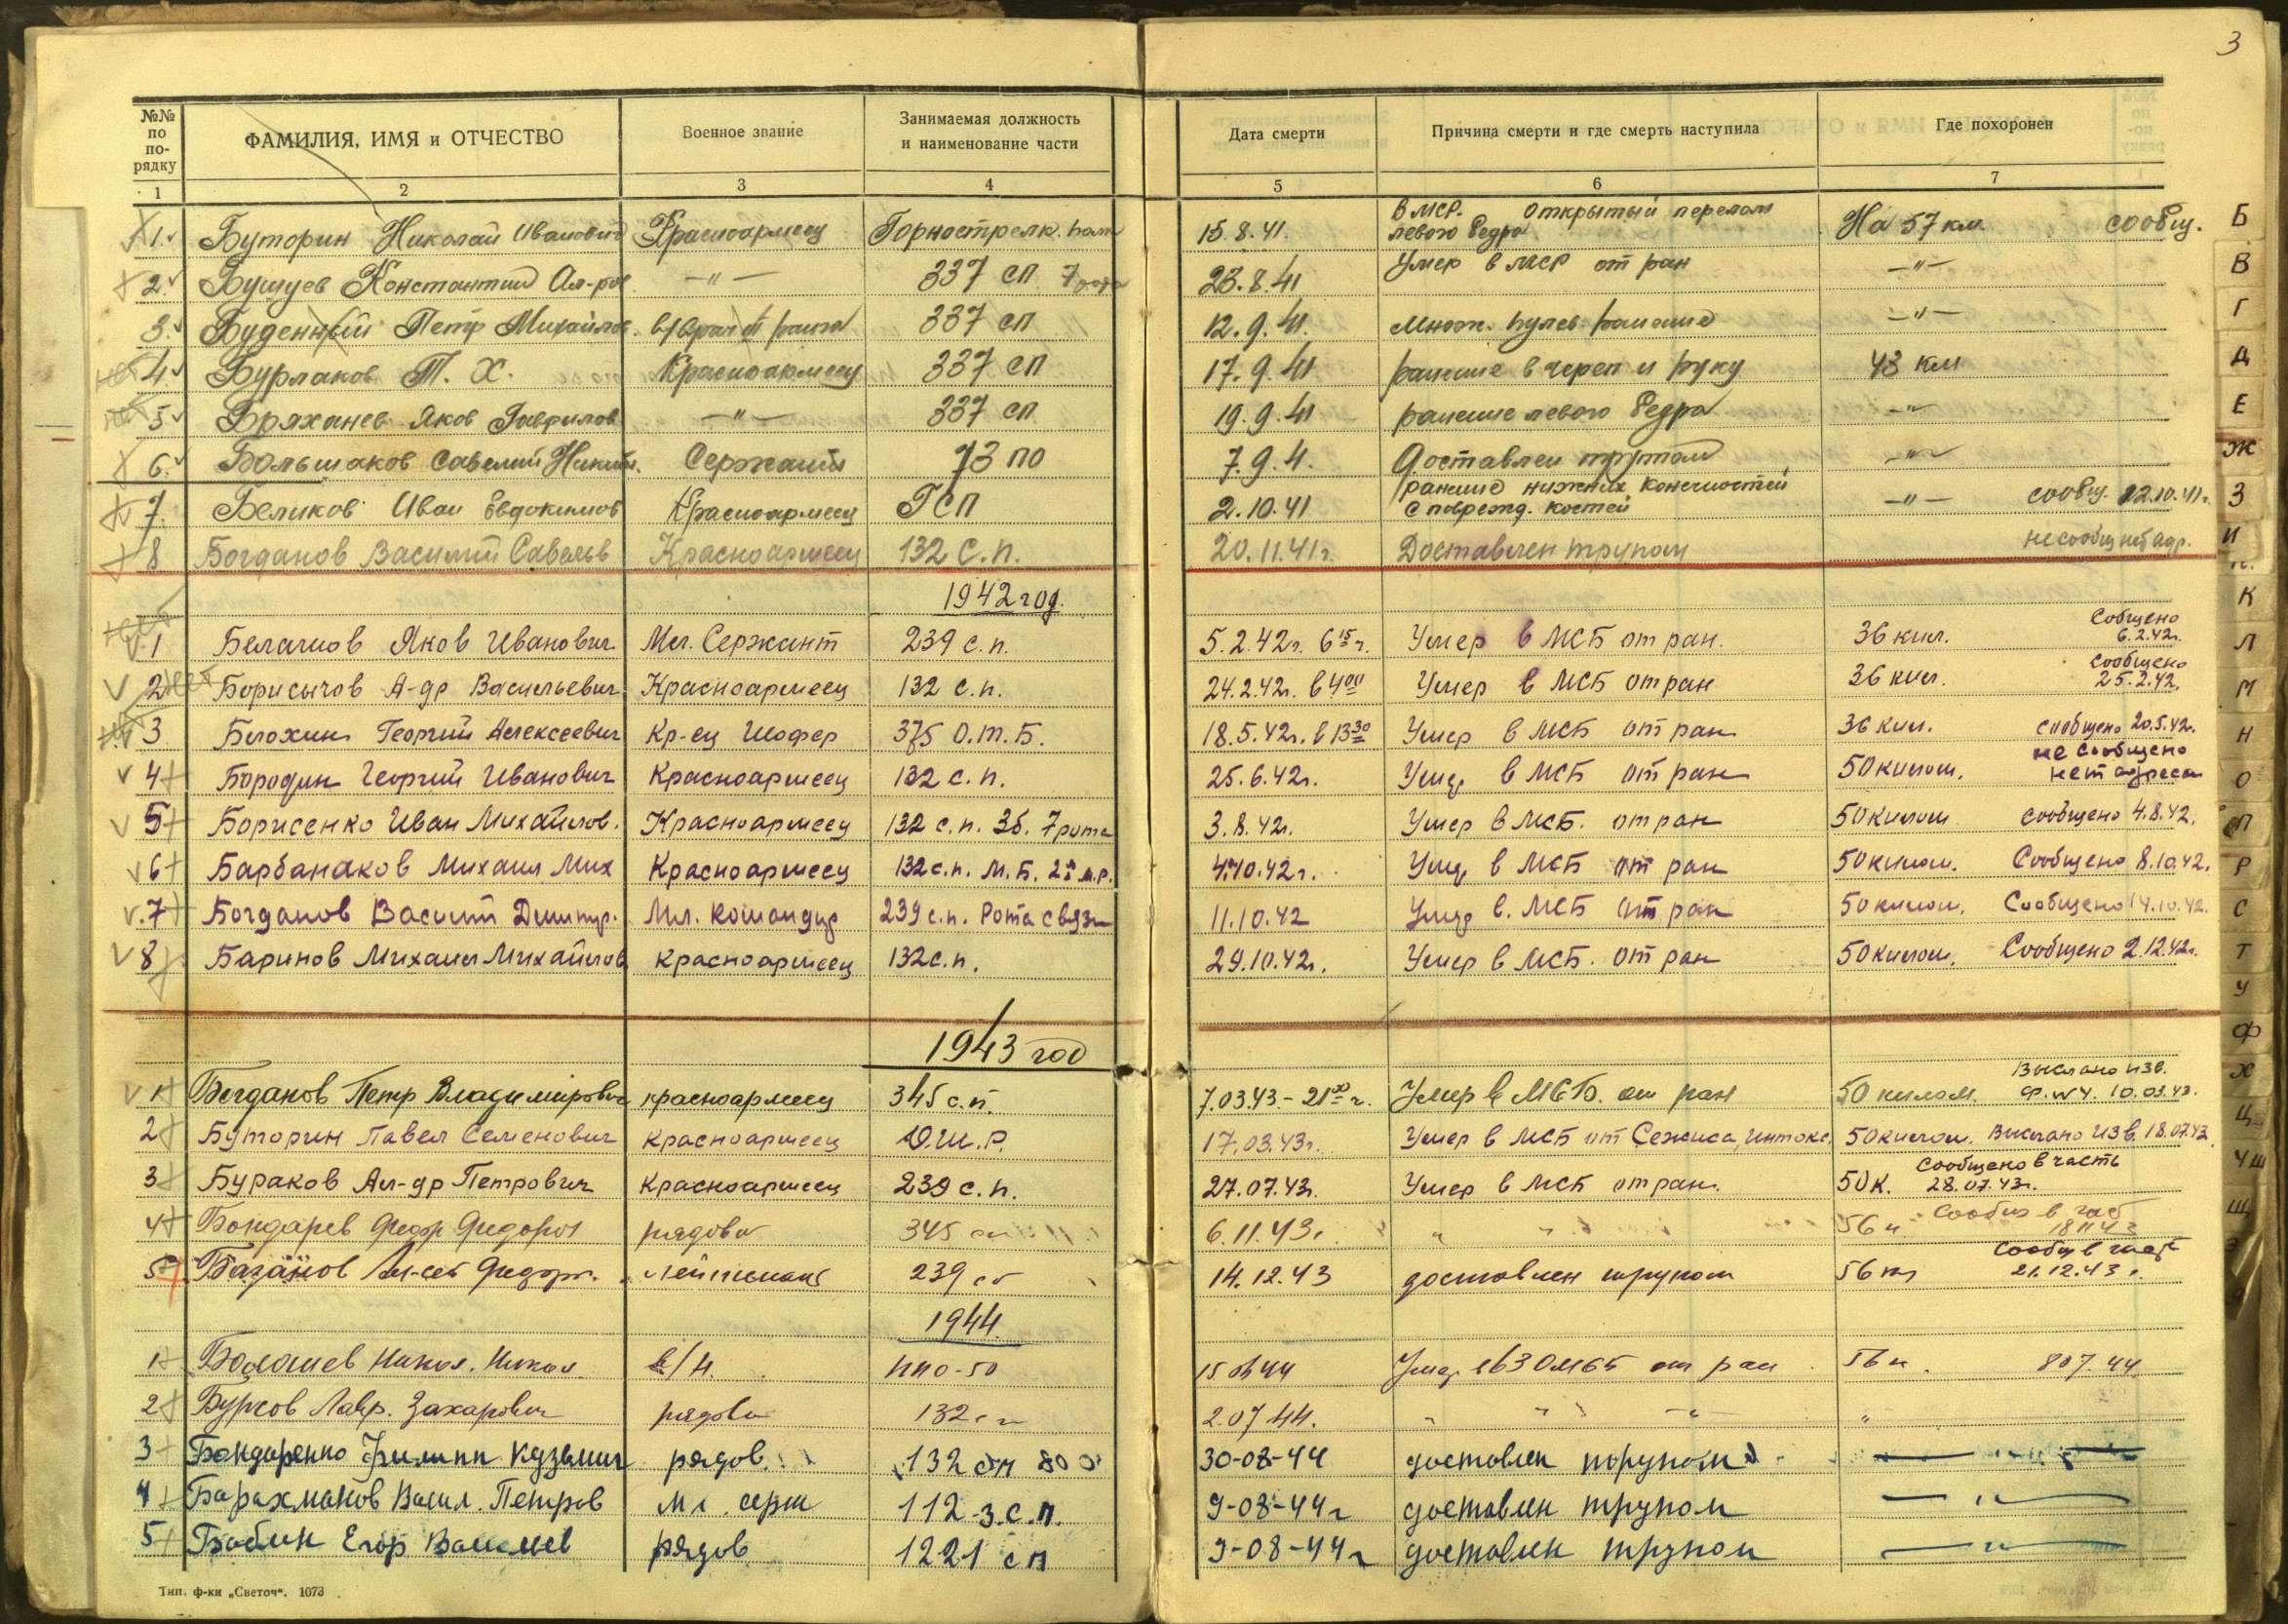 3
№№ по по-рядку
ФАМИЛИЯ, ИМЯ и ОТЧЕСТВО
Военное звание
Занимаемая должность и наименование части
Дата смерти
Причина смерти и где смерть наступила
Где похоронен
1 2 3 4 5 6 7
1. Буторин Николай Иванович Красноармеец Горнострелк. 15.8.41. в МСР. Открытый перелом левого бедра На 57 км сообщ.
2. Бушуев Константин Ал-ров. —"— 337 сп 7 рота 23.8.41 Умер в МСР от ран —"—
3. Буденный Петр Михайлов. 337 сп 12.9.41. Множ. пулев. ранение —"—
4 Бурлаков Т. Х. Красноармеец 337 сп 17.9.41 ранение в череп и руку 43 км
5 Бряханев Яков Гаврилов —"— 337 сп 19.9.41 ранение левого бедра —"—
6. Большаков Савелий Никит. Сержант 73 по 7.9.4. Доставлен трупом —"—
7. Беликов Иван Евдокимов Красноармеец ГСП 2.10.41 ранение нижних конечностей с поврежд. костей —"— сообщ. 12.10.41г.
8 Богданов Василий Савельв Красноармеец 132 С.п. 20.11.41г. Доставлен трупом не сообщ нет адр.
1942 год.
1 Яков Иванович Мл. Сержант 239 с.п. 5.2.42г. 6 15 ч. Умер в МСБ от ран. 36 кил. Собщено 6.2.42г.
2 Борисычов А-др Васильевич Красноармеец 132 с.п. 24.2.42г. в 4 00 Умер в МСБ от ран 36 кил. Сообщено 25.2.42.
3 Блохин Георгий Алексеевич Кр-ец Шофер 375 О.т.Б. 18.5.42г. в 13 30 Умер в МСБ от ран 36 кил. Сообщено 20.5.42г.
4 Бородин Георгий Иванович Красноармеец 132 с.п. 25.6.42г. Умер в МСБ от ран 50 килом. не сообщено нет адреса
5 Борисенко Иван Михайлов. Красноармеец 132 с.п. 3б. 7 рота 3.8.42г. Умер в МСБ. от ран 50 килом Сообщено 4.8.42.
6 Барбанаков Михаил Мих Красноармеец 132 с.п. М.Б. 2й м.р. 4.10.42г. Умер в МСБ от ран 50 килом. Сообщено 8.10.42.
7 Богданов Василий Димитр. Мл. Командир 239 с.п. Рота связи 11.10.42 Умер в. МСБ от ран 50 килом. Сообщено 14.10.42.
8 Баринов Михаил Михайлов Красноармеец 132 с.п. 29.10.42г. Умер в МСБ. от ран 50 килом. Сообщено 2.12.42г.
1943 год
1 Богданов Петр Владимирович красноармеец 345 с.п. 7.03.43 - 21 00 ч. Умер в МСБ. от ран 50 килом. Выслано изв. ф. №4. 10.03.43.
2 Буторин Павел Семенович Красноармеец О.Ш.Р. 17.03.43г. Умер в МСБ от Сепсиса, интокс. 50 килом. Выслано Изв. 18.07.43
3 Бураков Ал-др Петрович Красноармеец 239 с.п. 27.07.43г. Умер в МСБ от ран. 50 к. Сообщено в часть 28.07.43г.
4 Бондарев Федор Федоров рядовой 345 сп 6.11.43г " " " 56 к Сообщ в час
5 Базанов Ал-сей Федор. лейтенант 239 сп 14.12.43 доставлен трупом 56 км Сообщ в часть 21.12.43 г.
1944.
1 Никол. Никол. в/н. ППО-50 Умер от ран 56 к.
2 Бурков Лавр. Захарович рядовой 132 сп 2.07.44. " " " "
3 Бондаренко Филипп Кузьмич рядов. 132 сп 30-08-44 доставлен трупом —"—
4 Барахманов Васил. Петров мл. серж 112 з.с.п. 9-08-44г доставлен трупом —"—
5 Бабин Егор Васильев рядов 1221 сп 9-08-44г доставлен трупом —"—
Тип. ф-ки „Светоч“. 1073
Б
В
Г
Д
Е
Ж
З
И
К
Л
М
Н
О
П
Р
С
Т
У
Ф
Х
Ц
Ч Ш
Щ